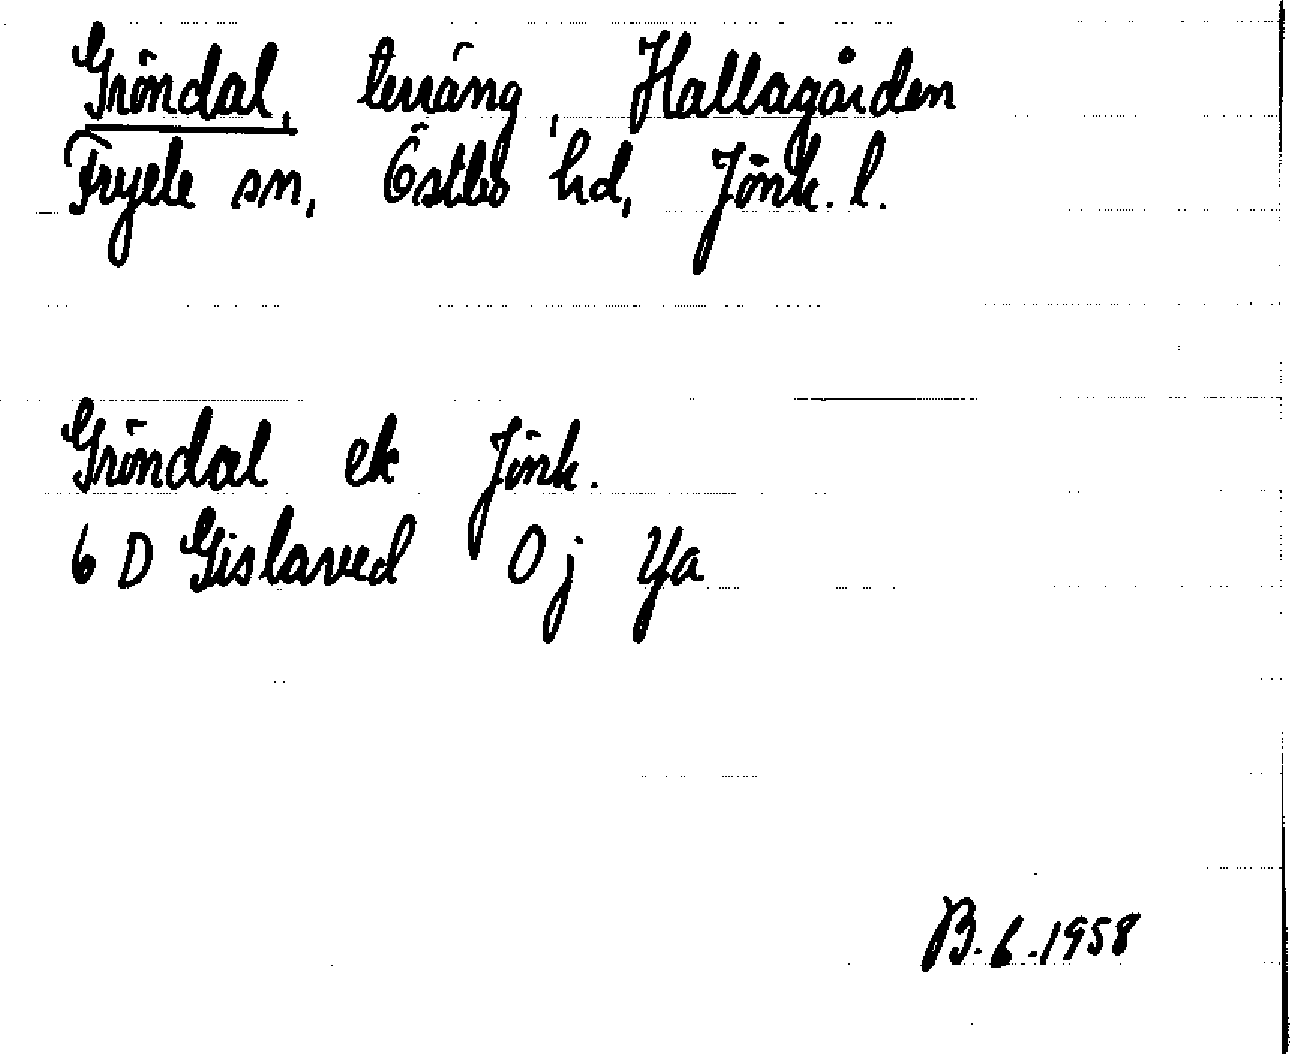 Gröndal, terräng, Hallagården
Fryele sn, Östbo hd, Jönk. l.
Gröndal ek Jönk.
6 D Gislaved 0 j Ya
B.6.1958